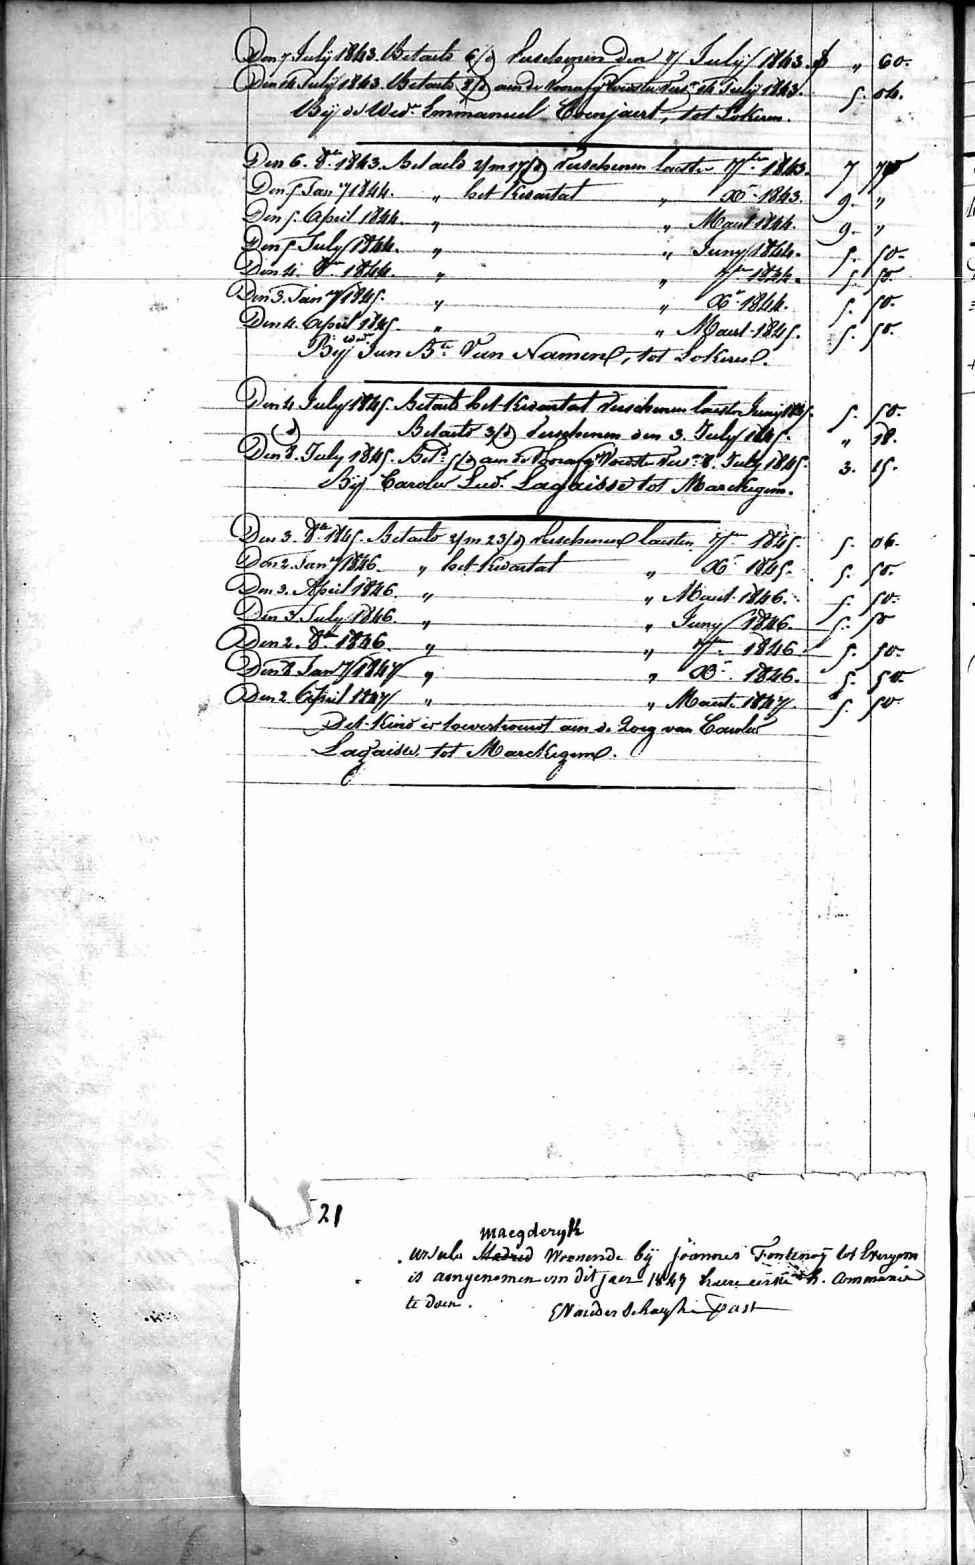 Den 7 July 1843. Betaelt 6/d Verschenen den 7 July 1843. f „ 60.
Den 14 July 1843. Betaelt aen de Voorafg Voedster Vers. 14 July 1843. 5. 04.
Bij de Wede. Emmanuel Coenjaert, tot Lokeren.
Den 6. 8re. 1843. Betaeld 2/m 17/d Verschenen laetste 7bre 1843. 7 74
Den 5 Jany 1844. „ het Kwartal „ Xre 1843. 9. „
Den 5. April 1844. „ „ Maert 1844. 9. „
Den 5 July 1844. „ „ Juny 1844. 5. 50.
Den 4. 8re 1844. „ „ 7bre 1844. 5. 50.
Den 3. Jany 1845. „ „ Xre 1844. 5. 50.
Den 4. April 1845. „ „ Maert 1845. 5. 50.
Bij wed. Jan Bte Van Namen, tot Lokeren.
Den 4 July 1845. Betaelt het Kwartal Verschenen laesten Juny 1845. 5. 50.
(d) Betaelt 3/d Verschenen den 3. July 1845. „ 18.
Den 8. July 1845. Betd. 5/d aen de Voorafg Voedster Vers. 8. July 1845. 3. 15.
Bij Carolus Lud. Lagaisse tot Marckegem.
Den 3. 8re 1845. Betaelt 2/m 23/d Verschenen laesten 7bre 1845. 5. 06.
Den 2. Jany 1846. „ het Kwartal „ Xre 1845. 5. 50.
Den 3. April 1846. „ „ Maert 1846. 5. 50.
Den 3 July 1846. „ „ Juny 1846. 5. 50
Den 2. 8re 1846. „ „ 7bre 1846 5. 50.
Den 8 Jany 1847 „ „ Xre 1846. 5. 50.
Den 2 April 1847 „ „ Maert 1847. 5. 50
Dit Kind is toevertrouwt aen de Zorg van Carolus
Lagaisse, tot Marckegem.
21
maegderyk
ursula Madrid Woenende bij joannes Fontenoy tot
is aengenomen om dit jaer 1849 haere eerste h. Communie
te doen. past